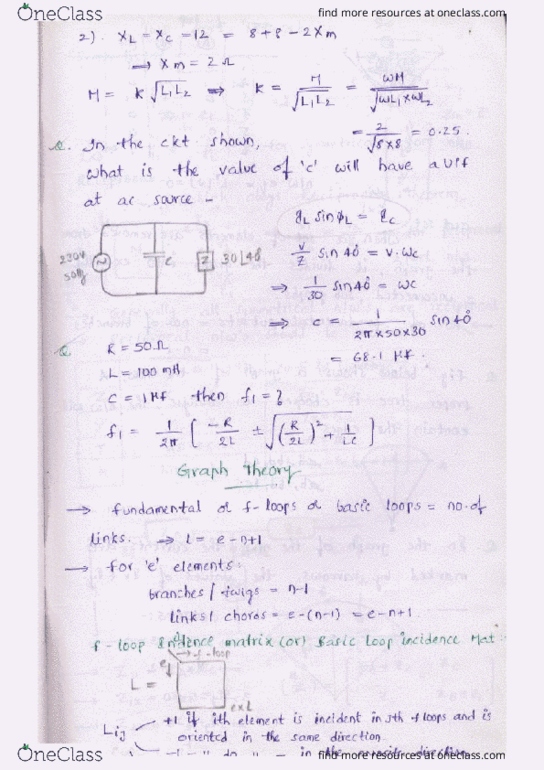 OneClass
find more resources at oneclass.com
2). XL - Xc = 12 = 8+8 - 2Xm
⟹ Xm = 2Ω
M = K√L₁L₂ ⟹ K = M/√L₁L₂ = ωM/√ωL₁×ωL₂
= 2/√8×8 = 0.25.
Q. In the ckt shown,
what is the value of 'c' will have a UPF
at ac source -
IL sin ϕL = Ic
230V
50Hz
C
Z
30∠40
V/Z sin 40° = V·ωc
⟹ 1/30 sin 40° = ωc
⟹ c = 1/2π×50×30 sin 40°
= 68.1 μF.
Q
R = 50Ω
L = 100 mH
C = 1μF then f₁ = ?
f₁ = 1/2π [ -R/2L ± √(R/2L)² + 1/LC ]
Graph Theory
→ fundamental or f-loops or basic loops = no. of
links. ⟹ L = e-n+1
→ for 'e' elements:
branches / twigs = n-1
links / chords = e-(n-1) = e-n+1.
f-loop incidence matrix (or) Basic Loop incidence Mat
→ f-loop
e↓
L =
exL
Lij
+1 if ith element is incident in jth f loops and is
oriented in the same direction.
-1 - " do " - in the
direction
OneClass
find more resources at oneclass.com